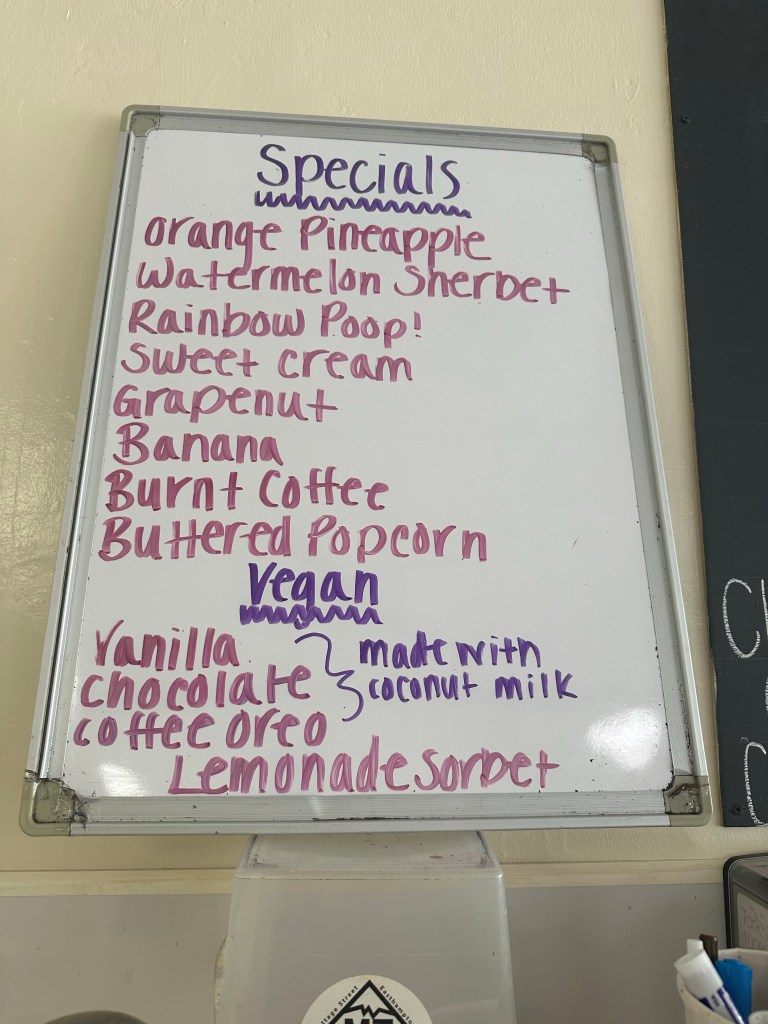 Specials
orange Pineapple
Watermelon Sherbet
Rainbow Poop!
Sweet cream
Grapenut
Banana
Burnt Coffee
Buttered Popcorn
Vegan
Vanilla
chocolate
coffee oreo
made with
coconut milk
Lemonade Sorbet